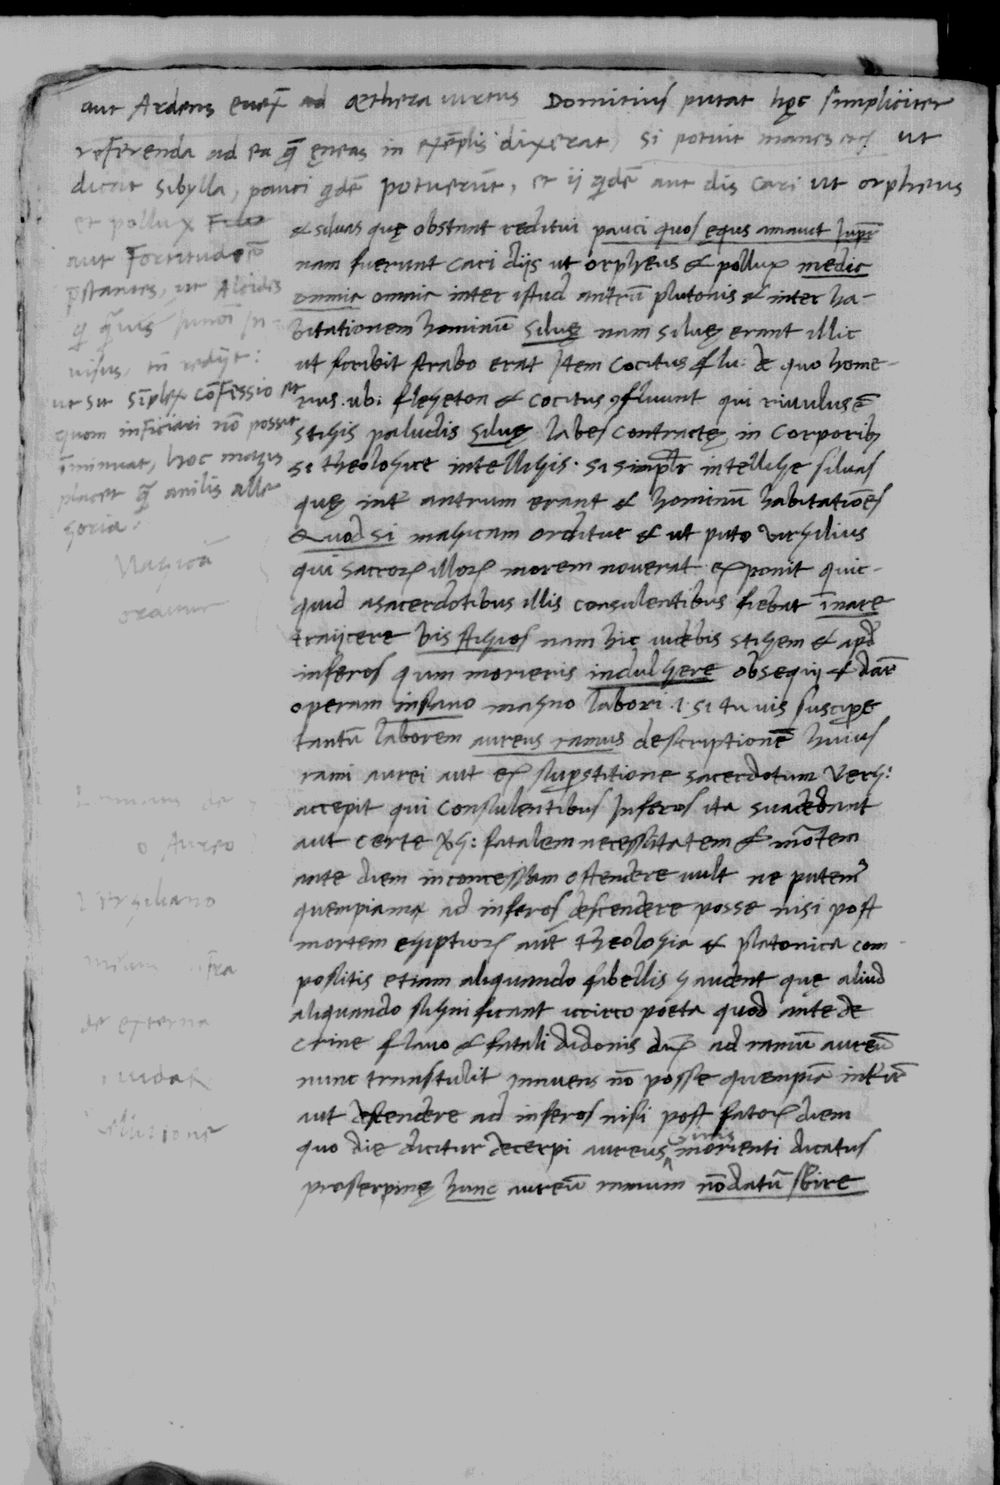 aut Ardens euex̄ ad æthera uirtus Domitius putat hęc simpliciter
referenda ad ea q̄ ęneas in exēplis dixerat) si potuit manes etc ut
dicat Sibylla, pauci qdē potuerūt, et ij qdē aut dis cari ut orpheus
et pollux
aut Fortitudīe
p̄stantes, ut Alcides
uisus, tn̄ redijt:
ut sit sīplex cōfessio et
quom inficiari nō possit
īminuat, hoc magis
placet q̄ anilis alle
goria.
Magicā
Aureo
Virgiliano
de externa
& siluas quę obstant reditui pauci quos ęqus amauit Iupr̄
nam fuerunt cari dijs ut orpheus & pollux medic
omnic omnic inter istud antrū plutonis & inter ha-
bitationem hominū siluę nam siluę erant illic
ut scribit strabo erat Item Cocitus flu: de quo home-
rus. ubi flegeton & cocitus ꝯfluunt qui riuulus ē
stigis paludis siluę labes contractę in corporib;
si theologice intelligis. si simplr intellige siluas
quę int̄ antrum erant & hominū habitatiōes
Quod si magicam orditur & ut puto Virgilius
qui sacroꝝ illoꝝ morem nouerat exponit quic-
quid a sacerdotibus illis consulentibus fiebat īnare
traijcere bis stigios nam hic uidebis stigem & apd
inferos qum morieris indulgere obsequij & dare
operam insano magno labori .i. si tu uis suscipe
tantū laborem aureus ramus descriptionē huius
rami aurei aut ex supstitione sacerdotum Verg:
accepit qui consulentibus Inferos ita suadebant
aut certe Vg: fatalem necessitatem & mōtem
ante diem inconcessam ostendere uult ne putem⁹
quempiam ad inferos descendere posse nisi post
mortem egiptioꝝ aut theologia & platonica com-
positis etiam aliquando fabellis gaudent quę aliud
aliquando significant iccirco poeta quod ante de
crine flauo & fatali didonis dix̄ ad ramū aureū
nunc transtulit innuens nō posse quempiā int̄ire
aut descendere ad inferos nisi post fatoꝝ diem
quo die dicitur decerpi aureus morienti dicatus
proserpinę hunc aureū ramum nō datū sbire